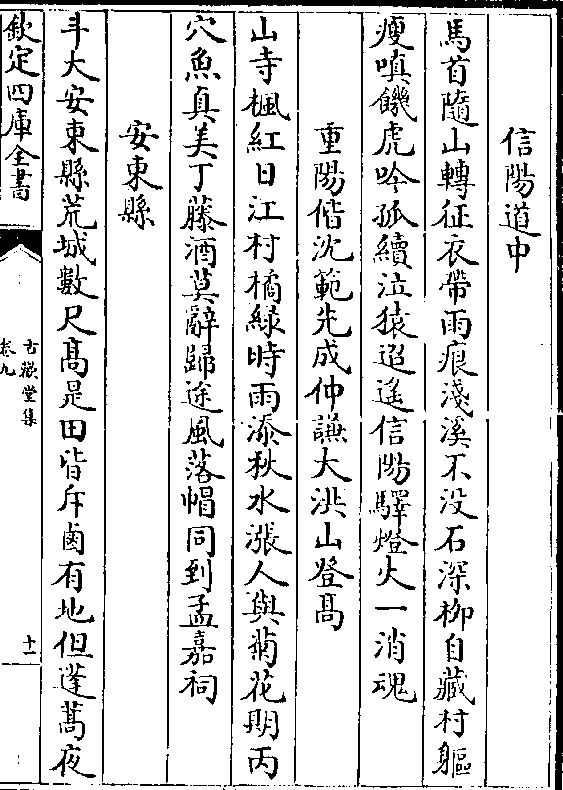 信陽道中
馬首隨山轉征衣帶雨痕淺溪不没石深栁自藏村軀
瘦嗔饑虎吟孤續泣猿迢遥信陽驛燈火一消魂
重陽偕沈範先成仲謙大洪山登髙
山寺楓紅日江村橘緑時雨添秋水漲人與菊花期丙
穴魚真美丁藤酒莫辭歸途風落帽同到孟嘉祠
安東縣
斗大安東縣荒城數尺髙是田皆斥鹵有地但蓬蒿夜
欽定四庫全書
古懽堂集
卷九
十一